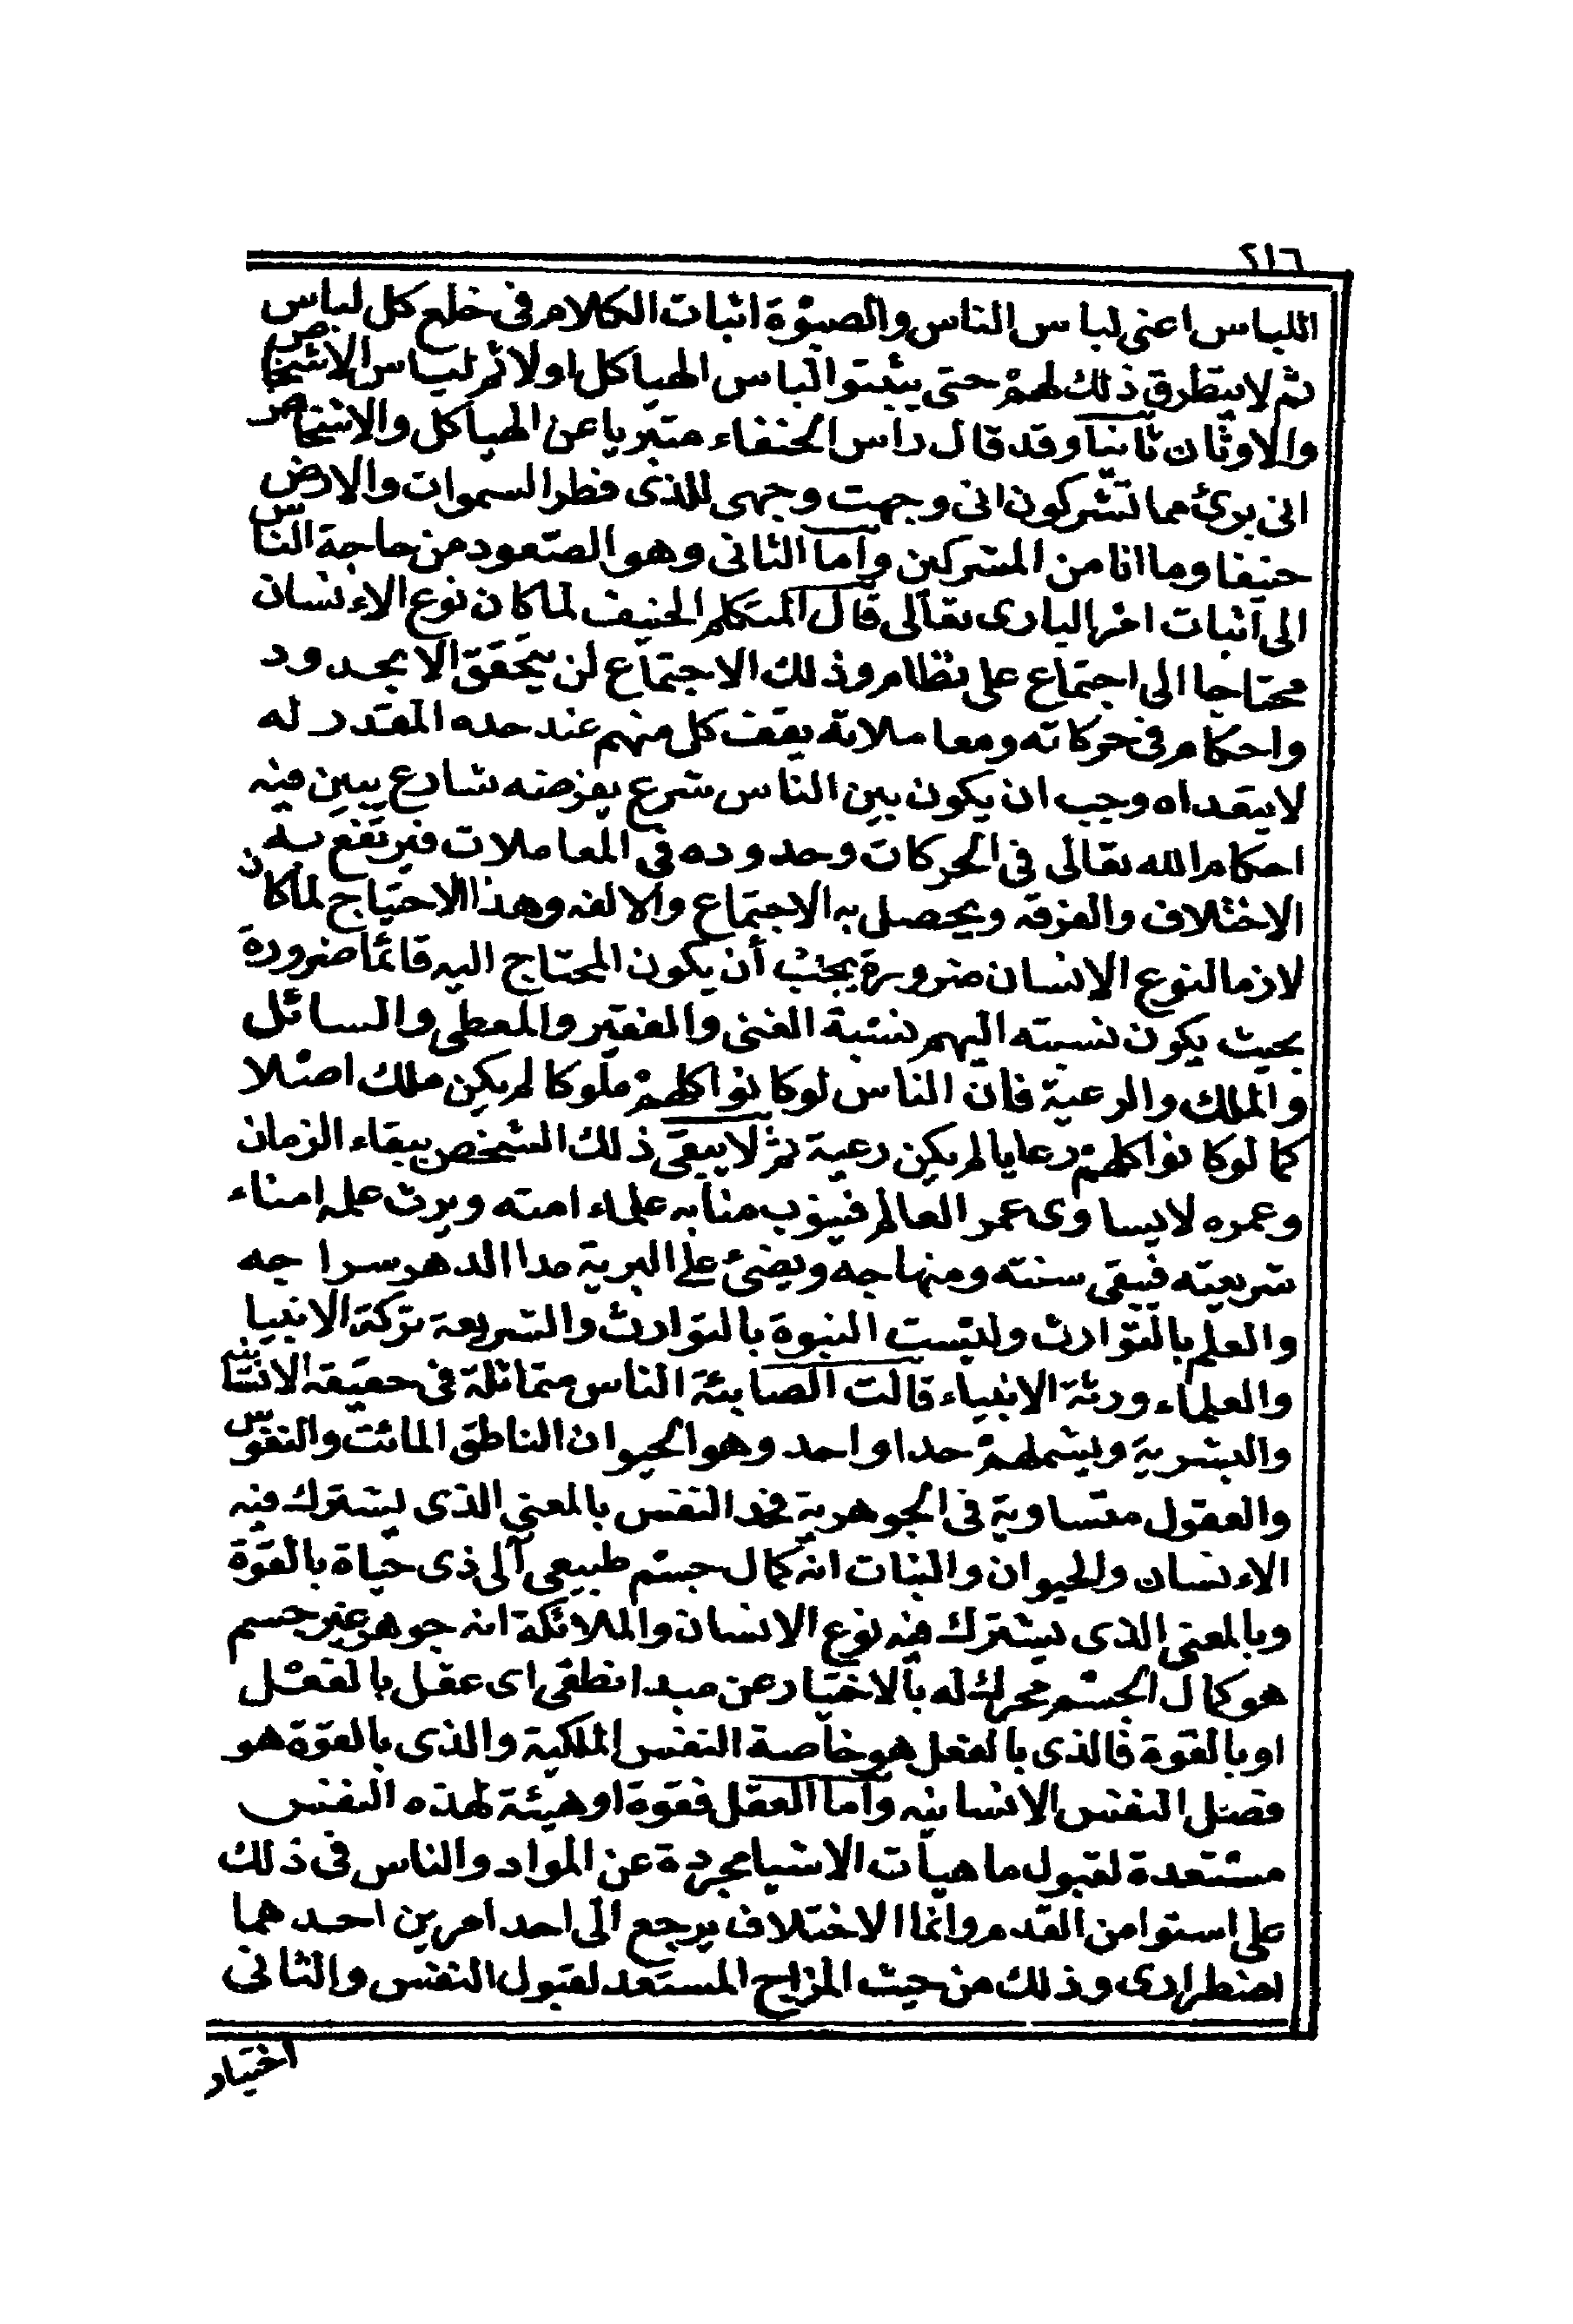 ٢١٦
اللباس اعنى لباس الناس والصبوة اثبات الكلام فى خلع كل لباس
ثم لا يتطرق ذلك لهم حتى يثبتوا لباس الهياكل اولا ثم لباس الاشخاص
والاوثان ثانيا وقد قال راس الحنفاء متبريا عن الهياكل والاشخاص
انى برئ مما تشركون انى وجهت وجهى للذى فطر السموات والارض
حنيفا وما انا من المشركين واما الثانى وهو الصعود من حاجة الناس
الى اثبات امر البارى تعالى قال المتكلم الحنيف لما كان نوع الاءنسان
محتاجا الى اجتماع على نظام وذلك الاجتماع لن يتحقق الا بحدود
واحكام فى حركاته ومعاملاته يقف كل منهم عند حده المقدر له
لا يتعداه وجب ان يكون بين الناس شرع يفرضه شارع يبين فيه
احكام الله تعالى فى الحركات وحدوده فى المعاملات فيرتفع به
الاختلاف والفرقه ويحصل به الاجتماع والالفه وهذا الاحتياج لما كان
لازما لنوع الانسان ضرورة يجب أن يكون المحتاج اليه قائما ضرورة
بحيث يكون نسبته اليهم نسبة الغنى والفقير والمعطى والسائل
والملك والرعية فان الناس لو كانوا كلهم ملوكا لم يكن ملك اصلا
كما لو كانوا كلهم رعايا لم يكن رعية ثم لا يبقى ذلك الشخص ببقاء الزمان
وعمره لا يساوى عمر العالم فينوب منابه علماء امته ويرث علمه امناء
شريعته فيبقى سنته ومنهاجه ويضئ على البرية مدا الدهر سراجه
والعلم بالتوارث وليست النبوة بالتوارث والشريعة تركة الانبيا
والعلماء ورثة الانبياء قالت الصابئة الناس متماثلة فى حقيقة الانسانيه
والبشرية ويشملهم حدا واحد وهو الحيوان الناطق المائت والنفوس
والعقول متساوية فى الجوهرية فحد النفس بالمعنى الذى يشترك فيه
الاءنسان والحيوان والنبات انه كمال جسم طبيعى آلى ذى حياة بالقوة
وبالمعنى الذى يشترك فيه نوع الانسان والملائكة انه جوهر غير جسم
هو كمال الجسم محرك له بالاختيار عن مبدا نطقى اى عقل بالفعل
او بالقوة فالذى بالفعل هو خاصة النفس الملكية والذى بالقوة هو
فصل النفس الانسانيه واما العقل فقوة او هيئة لهذه النفس
مستعدة لقبول ماهيات الاشيا مجردة عن المواد والناس فى ذلك
على استوا من القدم وانما الاختلاف يرجع الى احد امرين احدهما
اضطرارى وذلك من حيث المزاج المستعد لقبول النفس والثانى
اختيار